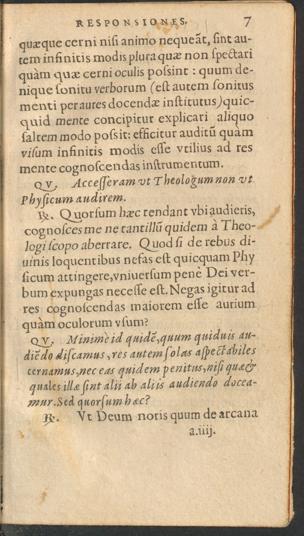 RESPONSIONES. 7
quæque cerni nisi animo nequeãt, sint au-
tem infinitis modis plura quæ non spectari
quàm quæ cerni oculis possint : quum de-
nique sonitu verborum (est autem sonitus
menti per aures docendæ institutus) quic-
quid mente concipitur explicari aliquo
saltem modo possit: efficitur auditũ quam
visum infinitis modis esse vtilius ad res
mente cognoscendas instrumentum.
QV. Accesseram vt Theologum non vt
Physicum audirem.
R. Quorsum hæc tendant vbi audieris,
cognosces me ne tantillũ quidem à Theo-
logi scopo aberrare. Quod si de rebus di-
uinis loquentibus nefas est quicquam Phy
sicum attingere, vniuersum penè Dei ver-
bum expungas necesse est. Negas igitur ad
res cognoscendas maiorem esse aurium
quàm oculorum vsum?
QV. Minimè id quidẽ, quum quiduis au-
diẽdo discamus, res autem solas aspectabiles
cernamus, nec eas quidem penitus, nisi quæ &
quales illæ sint alij ab aliis audiendo docea-
mur. Sed quorsum hæc?
R. Vt Deum noris quum de arcana
a.iiij.